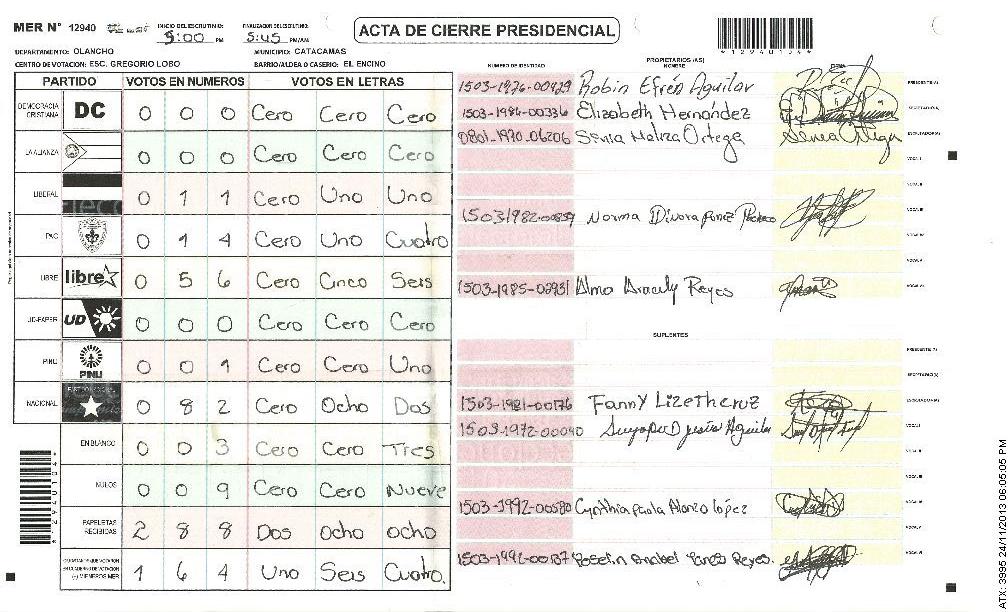 MER N° 12940
INICIO DEL ESCRUTINIO: 5:00 PM
FINALIZACION DEL ESCRUTINIO: 5:45 PM/AM
ACTA DE CIERRE PRESIDENCIAL
DEPARTAMENTO: OLANCHO
MUNICIPIO: CATACAMAS
CENTRO DE VOTACION: ESC. GREGORIO LOBO
BARRIO/ALDEA O CASERIO: EL ENCINO
PARTIDO VOTOS EN NUMEROS VOTOS EN LETRAS
DEMOCRACIA CRISTIANA DC 0 0 0 Cero Cero Cero
LA ALIANZA 0 0 0 Cero Cero Cero
LIBERAL 0 1 1 Cero Uno Uno
PAC 0 1 4 Cero Uno Cuatro
LIBRE libre 0 5 6 Cero Cinco Seis
UD-FAPER UD 0 0 0 Cero Cero Cero
PINU PINU 0 0 1 Cero Cero Uno
NACIONAL 0 8 2 Cero Ocho Dos
EN BLANCO 0 0 3 Cero Cero Tres
NULOS 0 0 9 Cero Cero Nueve
PAPELETAS RECIBIDAS 2 8 8 Dos Ocho Ocho
(+) MIEMBROS MER 1 6 4 Uno Seis Cuatro.
PROPIETARIOS (AS)
NUMERO DE IDENTIDAD NOMBRE FIRMA
1503-1976-00929 Robin Efrén Aguilar PRESIDENTE(A)
1503-1986-00336 Elizabeth Hernández SECRETARIO(A)
0801-1970-06206 Senia Maliza Ortega Senia Ortega ESCRUTADOR(A)
VOCAL I
VOCAL II
1503 1982-00859 Norma Pacheco VOCAL III
VOCAL IV
VOCAL V
1503-1985-02931 Alma Aracely Reyes VOCAL VI
SUPLENTES
PRESIDENTE (A)
SECRETARIO(A)
1503-1981-00176 Fanny Lizeth Cruz ESCRUTADOR(A)
1503-1972-00090 Aguilar VOCAL I
VOCAL II
VOCAL III
1503-1992-00580 Cynthia Paola Alonzo López
VOCAL V
Anabel Ponce Reyes. VOCAL VI
ATX: 3995 24/11/2013 06:05:05 PM